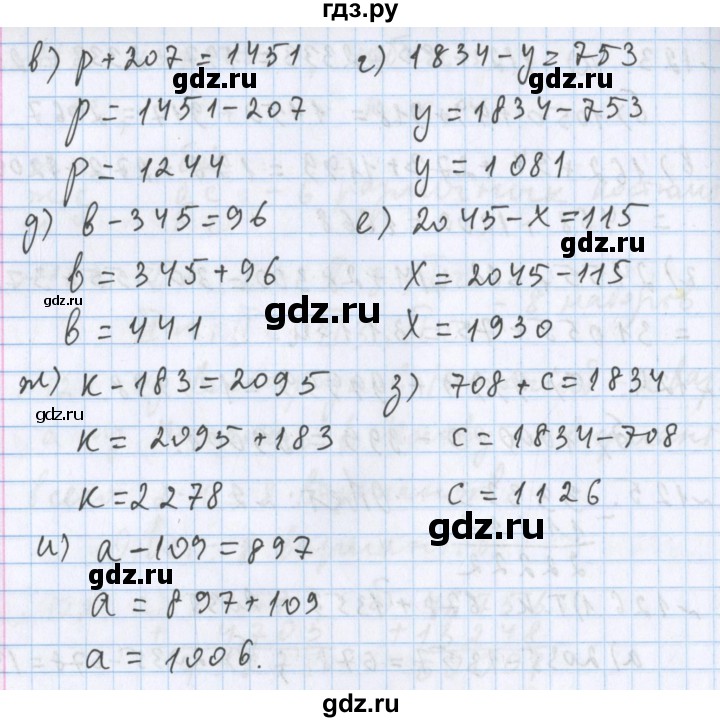 гдз.ру
в) p + 207 = 1451 г) 1834 - y = 753
p = 1451 - 207 y = 1834 - 753
p = 1244 y = 1081
д) в - 345 = 96 е) 2045 - x = 115
в = 345 + 96 x = 2045 - 115
в = 441 x = 1930
ж) к - 183 = 2095 з) 708 + c = 1834
к = 2095 + 183 c = 1834 - 708
к = 2278 c = 1126
и) a - 109 = 897
a = 897 + 109
a = 1006.
gdz.ru
gdz.ru
gdz.ru
gdz.ru
gdz.ru
gdz.ru
gdz.ru
gdz.ru
gdz.ru